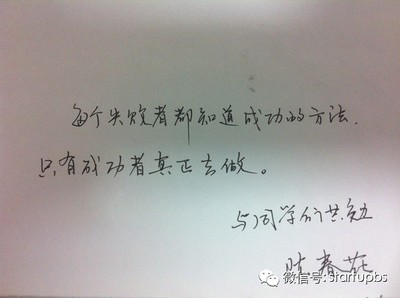 每个失败者都知道成功的方法，
只有成功者真正去做。
与同学们共勉
陈春花
微信号: Startupbs